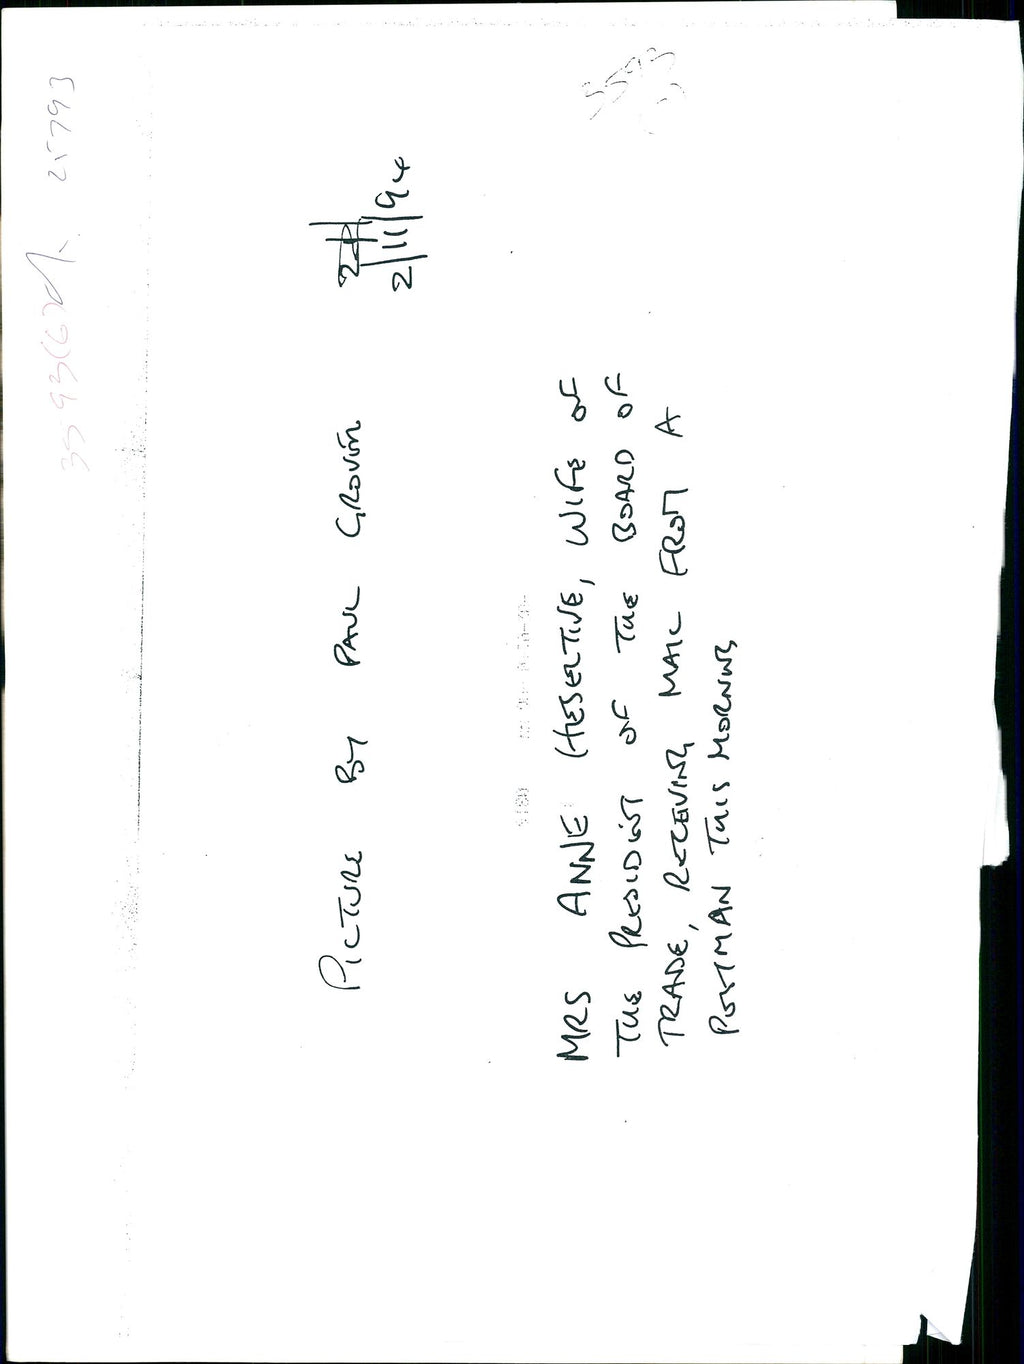 PICTURE BY PAUL GROVER
2/11/94
MRS ANNE HESELTINE, WIFE OF
THE PRESIDENT OF THE BOARD OF
TRADE, RECEIVING MAIL FROM A
POSTMAN THIS MORNING
25793